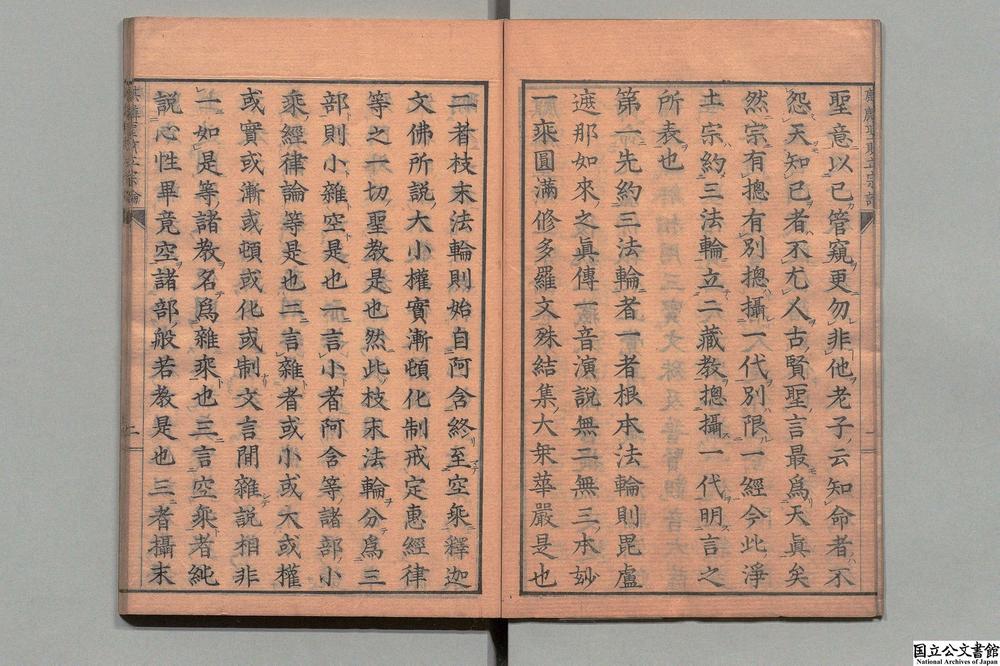 聖意以已管窺更勿非他老子云知命者不
怨天知已者不尤人古賢聖言最爲天眞矣
然宗有摠有別摠攝一代別限一經今此淨
土宗約三法輪立二藏教摠攝一代明言之
所表也
第一先約三法輪者一者根本法輪則毘盧
遮那如來之眞傳一音演說無二無三本妙
一乘圓滿修多羅文殊結集大乘華嚴是也
二者枝末法輪則始自阿含終至空乘釋迦
文佛所說大小權實漸頓化制戒定惠經律
等之一切聖教是也然此枝末法輪分爲三
部則小雜空是也一言小者阿含等諸部小
乘經律論等是也二言雜者或小或大或權
或實或漸或頓或化或制文言間雜說相非
一如是等諸教名爲雜乘也三言空乘者純
說心性畢竟空諸部般若教是也三者攝末
国立公文書館
National Archives of Japan